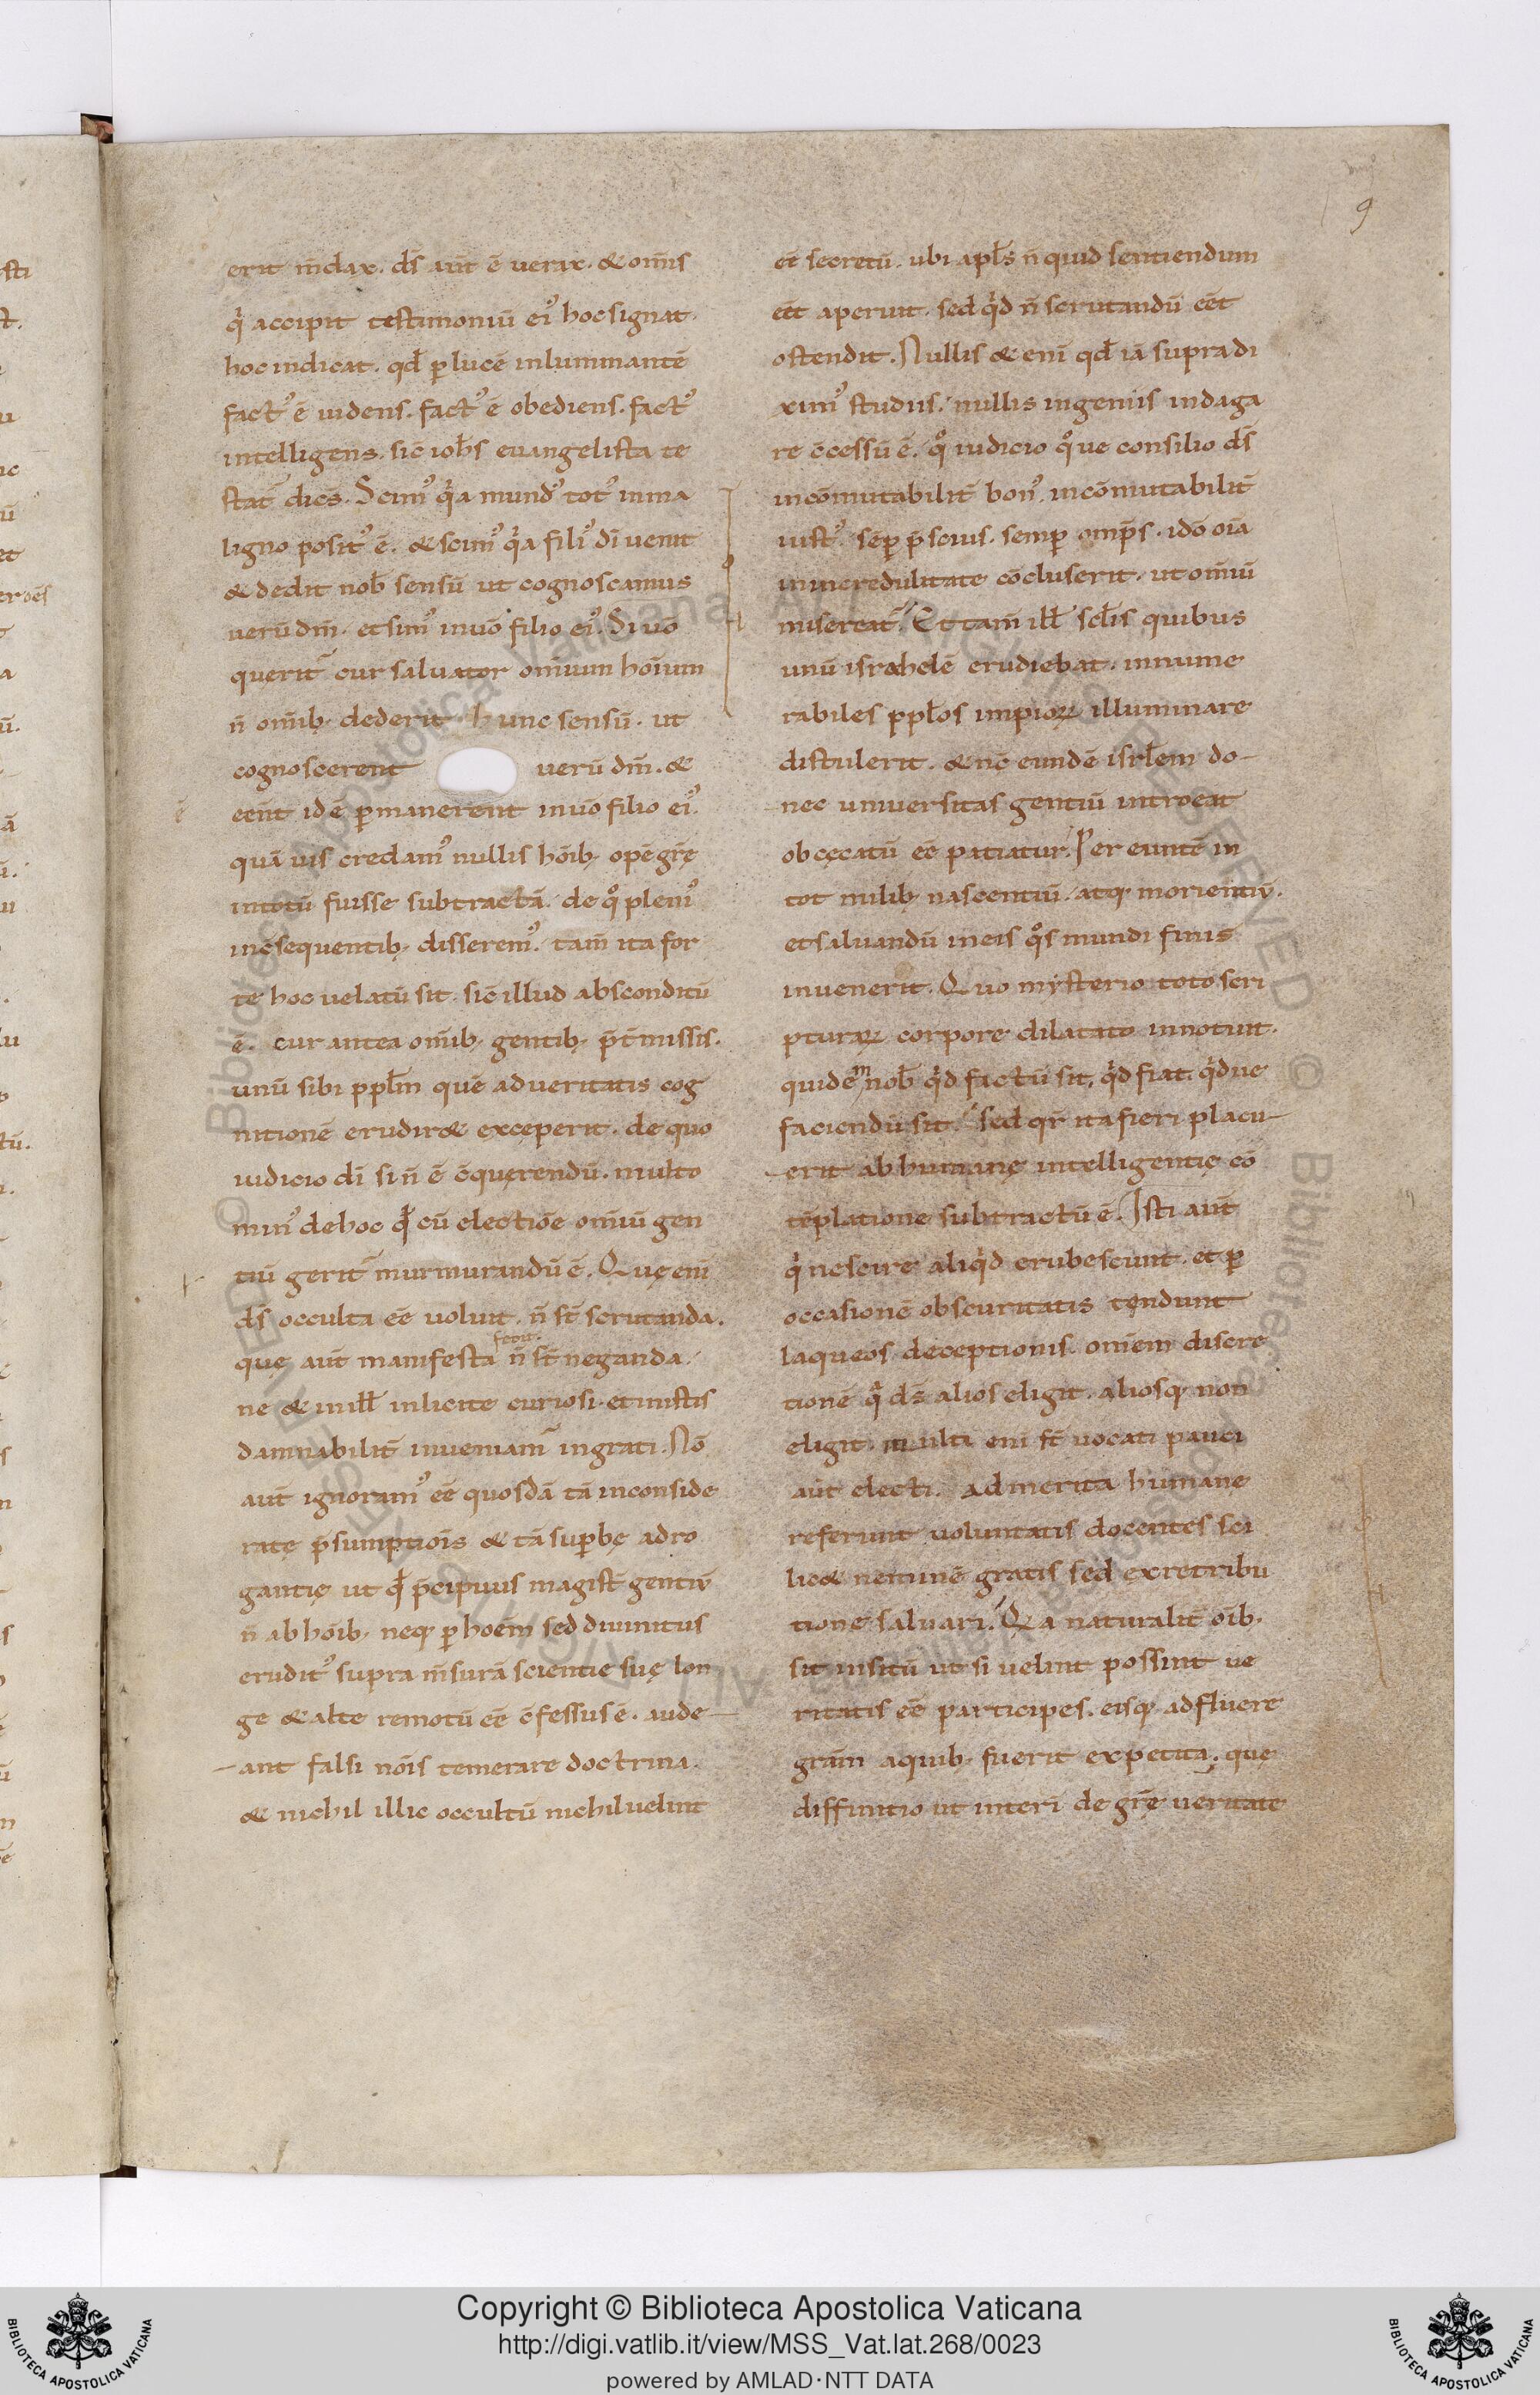 9
erit m̄dax. ds̄ aut̄ ē verax. & om̄is
qͥ accipit testimoniū eiꝰ hoc signat.
hoc indicat. qd̄ ꝑ lucē inluminantē
factꝰ ē uidens. factꝰ ē obediens. factꝰ
intelligens. sic̄ ioh̄s euangelista te
stat᷑ dicēs. Scimꝰ qͥa mundꝰ totꝰ inma
ligno positꝰ ē. & scimꝰ qͥa filiꝰ dī uenit
& dedit nob̄ sensū ut cognoscamus
uerū dm̄. et simꝰ inuō filio eiꝰ. Si uō
querit᷑ cur saluator om̄ium hoīum
n̄ om̄ibꝫ dederit. hunc sensū. ut
cognoscerent uerū dm̄. &
eēnt idē ꝑmanerent inuō filio eiꝰ.
quā uis credamꝰ nullis hōibꝫ opē gr̄ę
intotū fuisse subtractā. de qͦ pleniꝰ
incsequentibꝫ disseremꝰ. tam̄ ita for
te hoc uelatū sit. sic̄ illud absconditū
ē. cur antea om̄ibꝫ gentibꝫ p̄t̄missis.
unū sibi ppl̄m quē ad ueritatis cog
nitionē erudir& exceperit. de quo
iudicio dī si n̄ ē c̄querendū. multo
minꝰ de hoc qd̄ cū electiōe om̄iū gen
tiū gerit᷑ murmurandū ē. Quę eni
ds̄ occulta eē uoluit. n̄ st̄ scrutanda.
fecit.
quę aut̄ manifesta n̄ st̄ neganda.
ne & in ill̄ inlicite curiosi. et in istis
damnabilit̄ inueniam᷑ ingrati. Nō
aut̄ ignoramꝰ eē quosdā tā inconside
ratę p̄sumptiōis & tā suꝑbę adro
gantię ut qd̄ p̄cipuus magist̄ gentiū
n̄ ab hōibꝫ neqꝫ ꝑ hoēm sed diuinitus
eruditꝰ supra m̄surā scientie suę lon
ge & alte remotū eē c̄fessus ē. aude
ant falsi nōis temerare doctrina.
& nichil illic occultū nichil uelint
eē secretū. ubi apl̄s n̄ quid sentiendum
eēt aperuit. sed qͥd n̄ scrutandū eēt
ostendit. Nullis & enī qd̄ iā supra di
ximꝰ studiis. nullis ingeniis indaga
re c̄cessū ē. qͦ iudicio qͦue consilio ds̄
incōmutabilit̄ bonꝰ. incōmutabilit̄
iustꝰ. sēꝑ p̄scius. semꝑ omp̄s. idō oīa
inincredulitate cōcluserit. ut om̄iū
misereat᷑. Et tam̄ ill̄ scl̄is quibus
unū israhelē erudiebat. innume
rabiles ppl̄os impioꝝ illuminare
distulerit. & nc̄ eundē isrl̄em do
nec uniuersitas gentiū introeat
obcęcatū eē patiatur. Per euntē in
tot milibꝫ nascentiū. atqꝫ morientiū.
et saluandū in eis qͦs mundi finis
inuenerit. Quo mysterio toto scri
pturaꝝ corpore dilatato innotuit.
quidē m nob̄ qͥd factū sit, qͥd fiat. qͥdue
faciendū sit. sed qr̄ ita fieri placu
erit ab humanę intelligentię cō
tēplatione subtractū ē. Isti aut̄
qͥ nescire aliqͥd erubescunt. et ꝑ
occasionē obscuritatis tendunt
laqueos deceptionis. om̄em discre
tionē qͣ ds̄ alios eligit. aliosqꝫ non
eligit. multi eni st̄ uocati pauci
aut̄ electi. ad merita humane
referunt uoluntatis docentes sci
lic& neminē gratis sed ex retribu
tione saluari. Qa naturalit̄ oībꝫ
sit insitū ut si uelint possint ue
ritatis eē participes. eisqꝫ adfluere
gram̄ a quibꝫ fuerit expetita. quę
diffinitio ut interī de gr̄ę ueritate
Copyright © Biblioteca Apostolica Vaticana
http://digi.vatlib.it/view/MSS_Vat.lat.268/0023
powered by AMLAD·NTT DATA
BIBLIOTECA APOSTOLICA VATICANA
BIBLIOTECA APOSTOLICA VATICANA